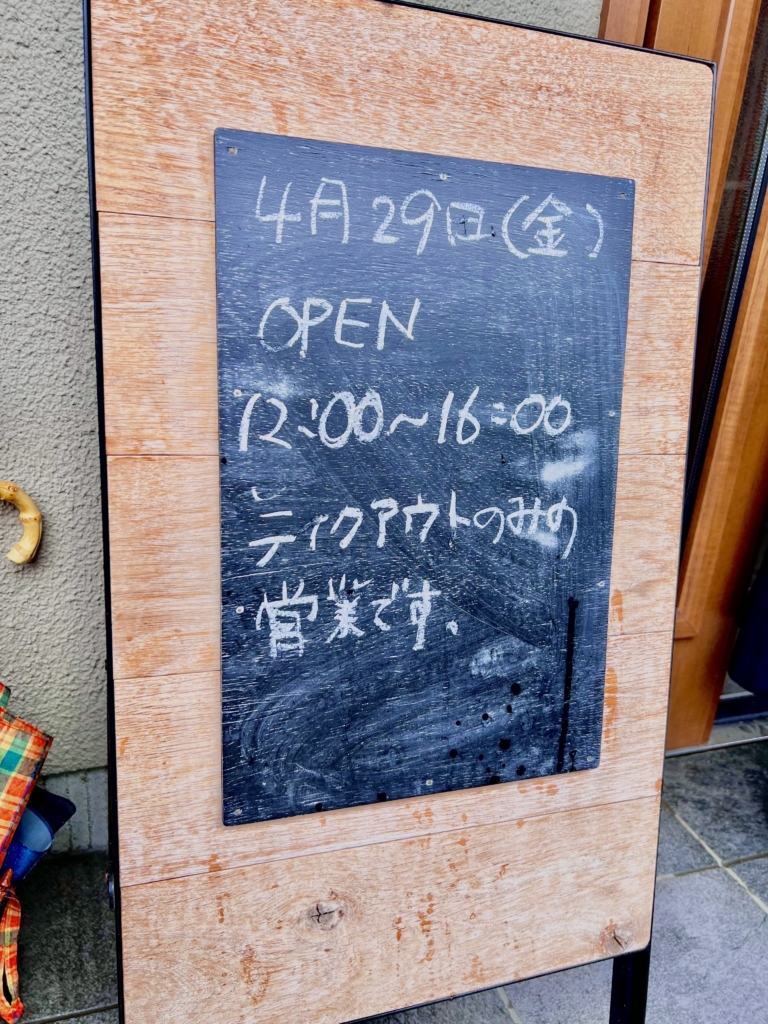 4月29日(金)
OPEN
12:00~16:00
テイクアウトのみの
営業です。